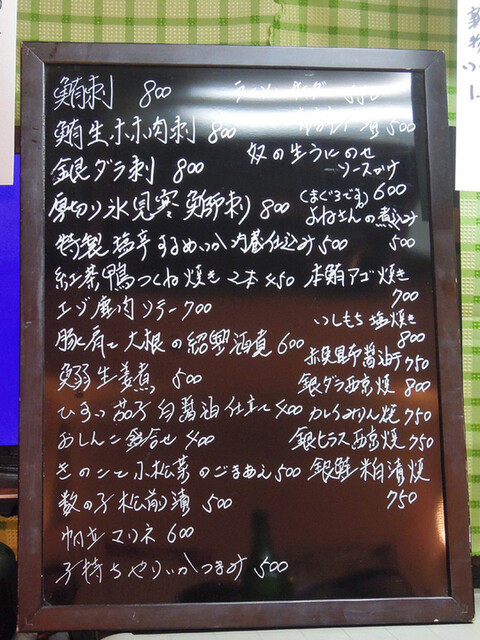 鮪刺 800
鮪生ホホ肉刺 800
銀ダラ刺 800
厚切り氷見寒鰤刺 800
特製塩辛するめいか内蔵仕込み 500
紅茶鴨つくね焼き 2本 450
エゾ鹿肉ソテー 700
豚肩と大根の紹興酒煮 600
鰯生姜煮 500
ひすい茄子白醤油仕立て 400
おしんこ盛合せ 400
きのこと小松菜のごまあえ 500
数の子松前漬 500
帆立マリネ 600
子持ちやりいかつまみ 500
500
奴の生うにのせ
ソースがけ
(まぐろです) 600
よねさんの煮込み
500
本鮪アゴ焼き
700
いしもち塩焼き
800
750
銀ダラ西京焼 800
カレイみりん焼 750
銀ヒラス西京焼 750
銀鮭粕漬焼
750